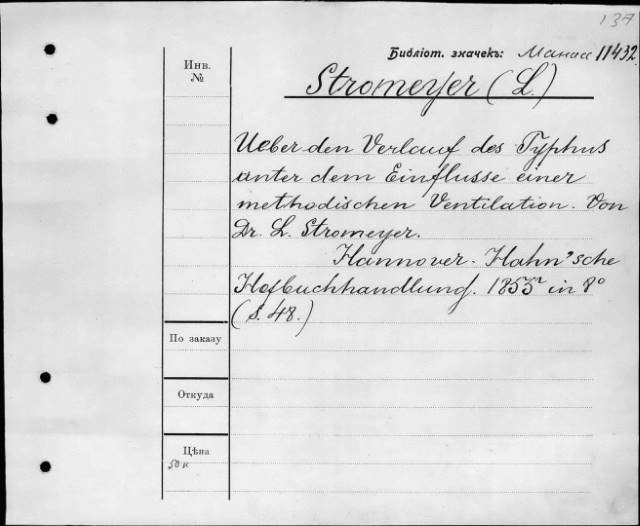 137
Библіот. значекъ: Манас 11432
Инв.
№
Stromeyer (L.)
Ueber den Verlauf des Typhus
unter dem Einflusse einer
methodischen Ventilation. Von
Dr. L. Stromeyer.
Hannover. Hahn'sche
Hofbuchhandlung. 1855 in 8°
(S. 48.)
По заказу
Откуда
Цѣна
50 к